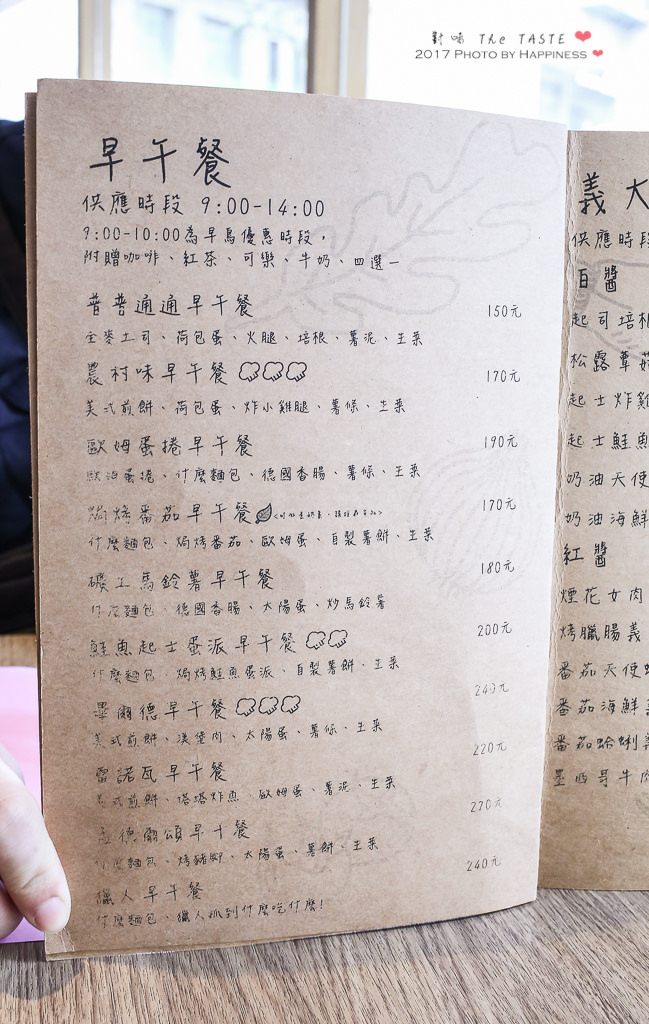 對味 The TASTE
2017 PHOTO BY HAPPINESS
早午餐
供應時段 9:00-14:00
9:00-10:00為早鳥優惠時段，
附贈咖啡、紅茶、可樂、牛奶、四選一
普普通通早午餐 150元
全麥土司、荷包蛋、火腿、培根、薯泥、生菜
農村味早午餐 170元
美式煎餅、荷包蛋、炸小雞腿、薯條、生菜
歐姆蛋捲早午餐 190元
歐姆蛋捲、什麼麵包、德國香腸、薯條、生菜
焗烤番茄早午餐 170元
什麼麵包、焗烤番茄、歐姆蛋、自製薯餅、生菜
礦工馬鈴薯早午餐 180元
什麼麵包、德國香腸、太陽蛋、炒馬鈴薯
鮭魚起士蛋派早午餐 200元
什麼麵包、焗烤鮭魚蛋派、自製薯餅、生菜
畢爾德早午餐 240元
美式煎餅、漢堡肉、太陽蛋、薯條、生菜
雷諾瓦早午餐 220元
美式煎餅、塔塔炸魚、歐姆蛋、薯泥、生菜
孟德爾頌早午餐 270元
什麼麵包、烤豬腳、太陽蛋、薯餅、生菜
獵人早午餐 240元
什麼麵包、獵人抓到什麼吃什麼!
義大
供應時段
白醬
起司培根
松露蕈菇
起士炸雞
起士鮭魚
奶油天使
奶油海鮮
紅醬
煙花女肉
烤臘腸義
番茄天使
番茄海鮮
番茄蛤蜊
墨西哥牛肉